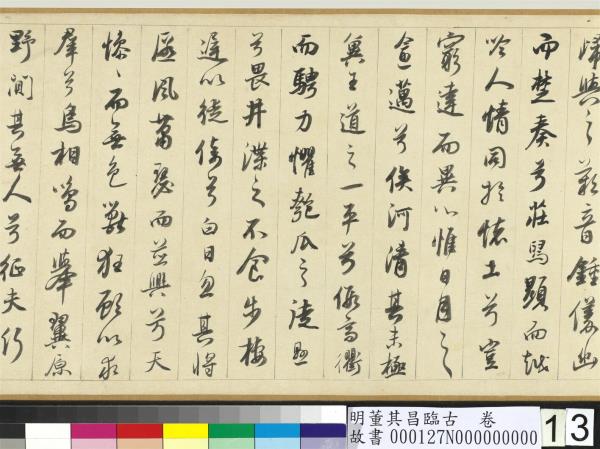 歸與之歎音鍾儀幽
而楚奏兮莊舄顯而越
吟人情同於懷土兮豈
窮達而異心惟日月之
逾邁兮俟河清其未極
冀王道之一平兮假高衢
而騁力懼匏瓜之徒懸
兮畏井渫之不食步棲
遲以徙倚兮白日忽其將
匿風蕭瑟而並興兮天
慘〻而無色獸狂顧以求
羣兮鳥相鳴而舉翼原
野闃其無人兮征夫行
明董其昌臨古 卷
故書 000127N000000000
13